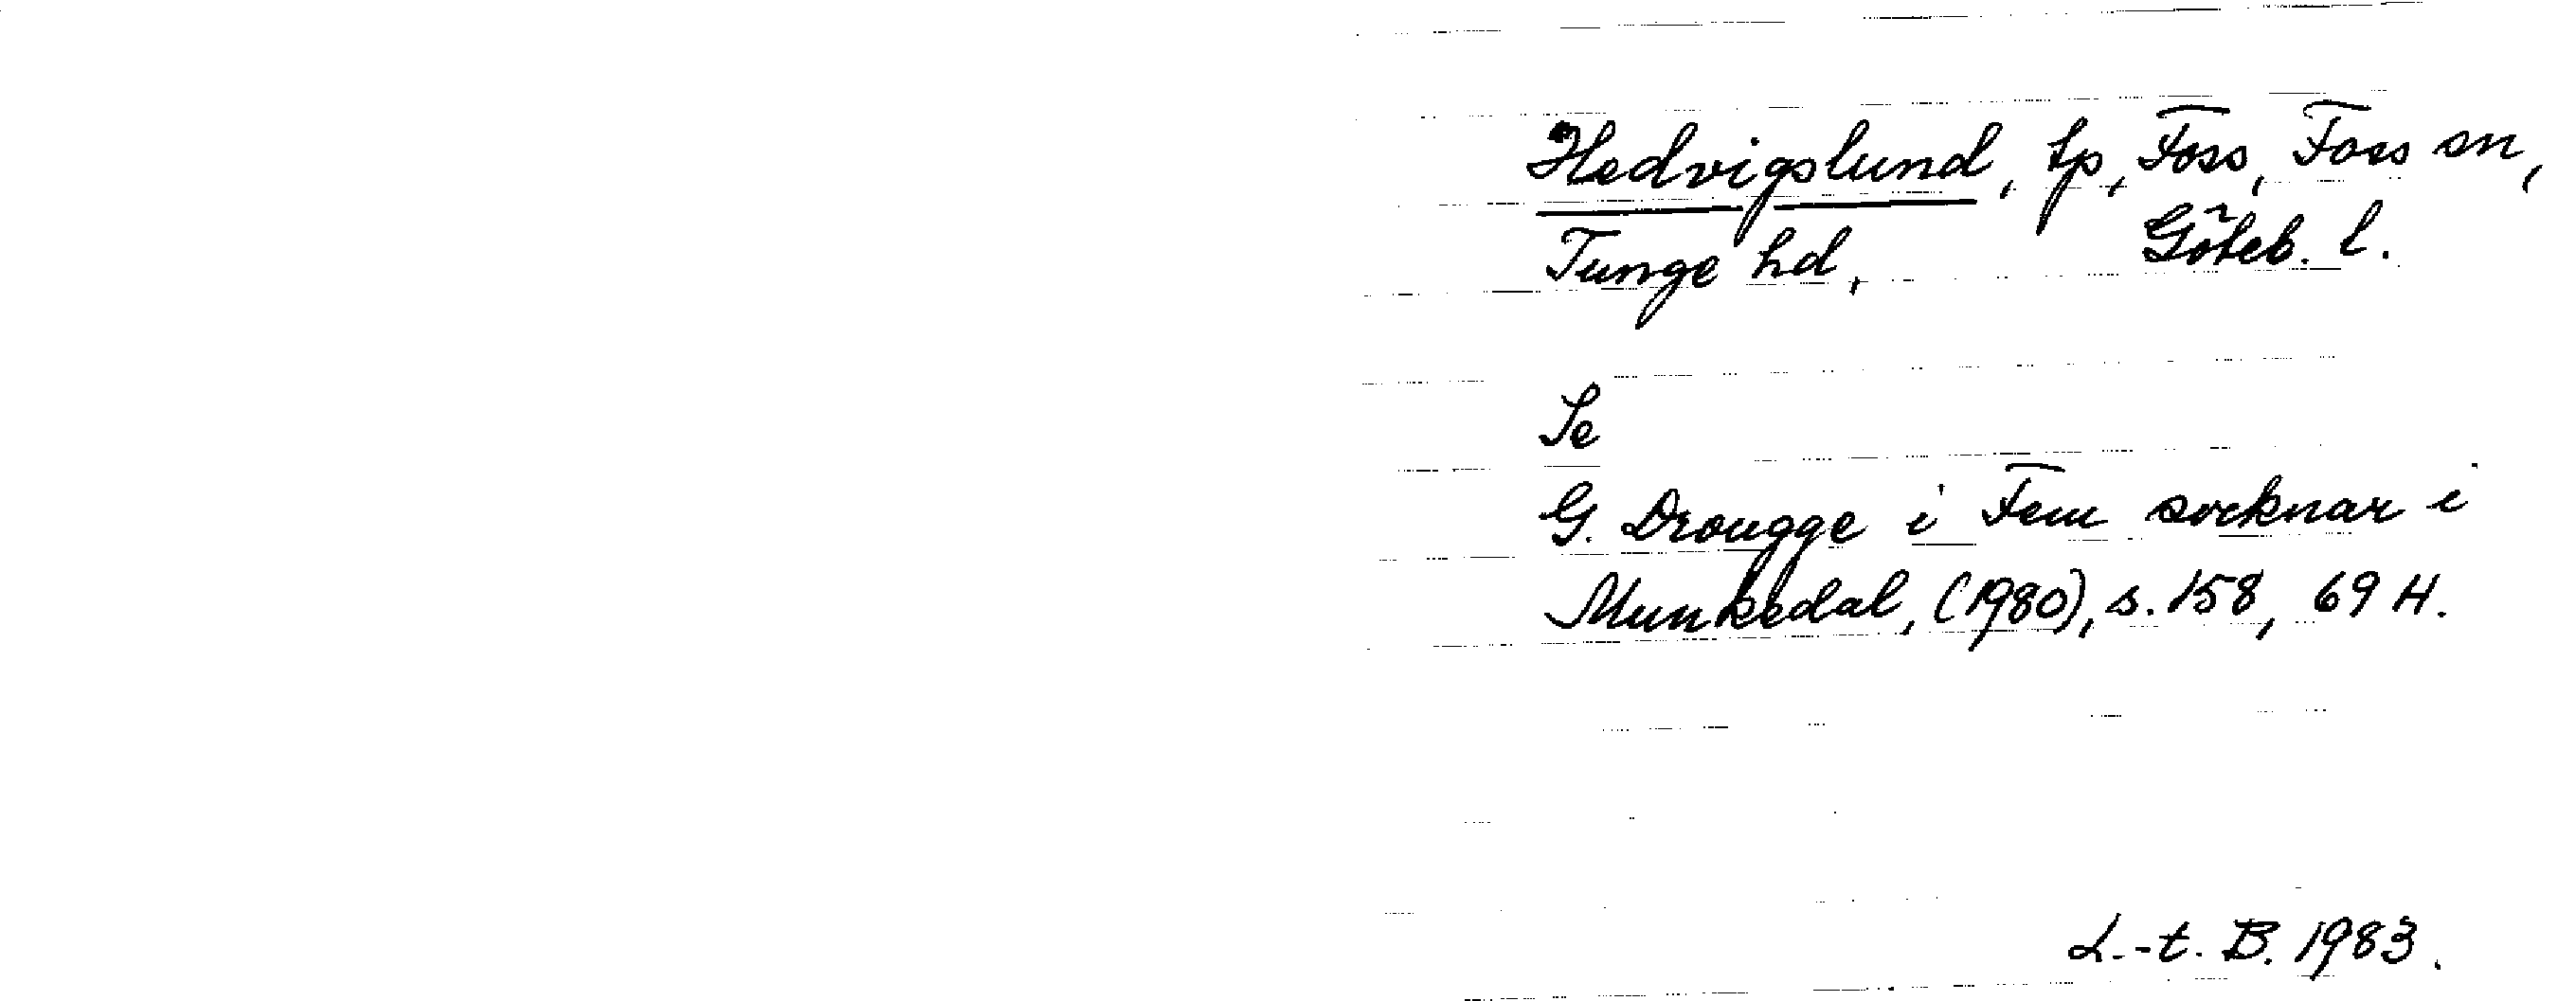 Hedvigslund, tp, Foss, Foss sn,
Tunge hd, Göteb. l.
Se
G. Drougge i Fem socknar i
Munkedal, (1980), s. 158, 69 H.
L.-t. B. 1983.